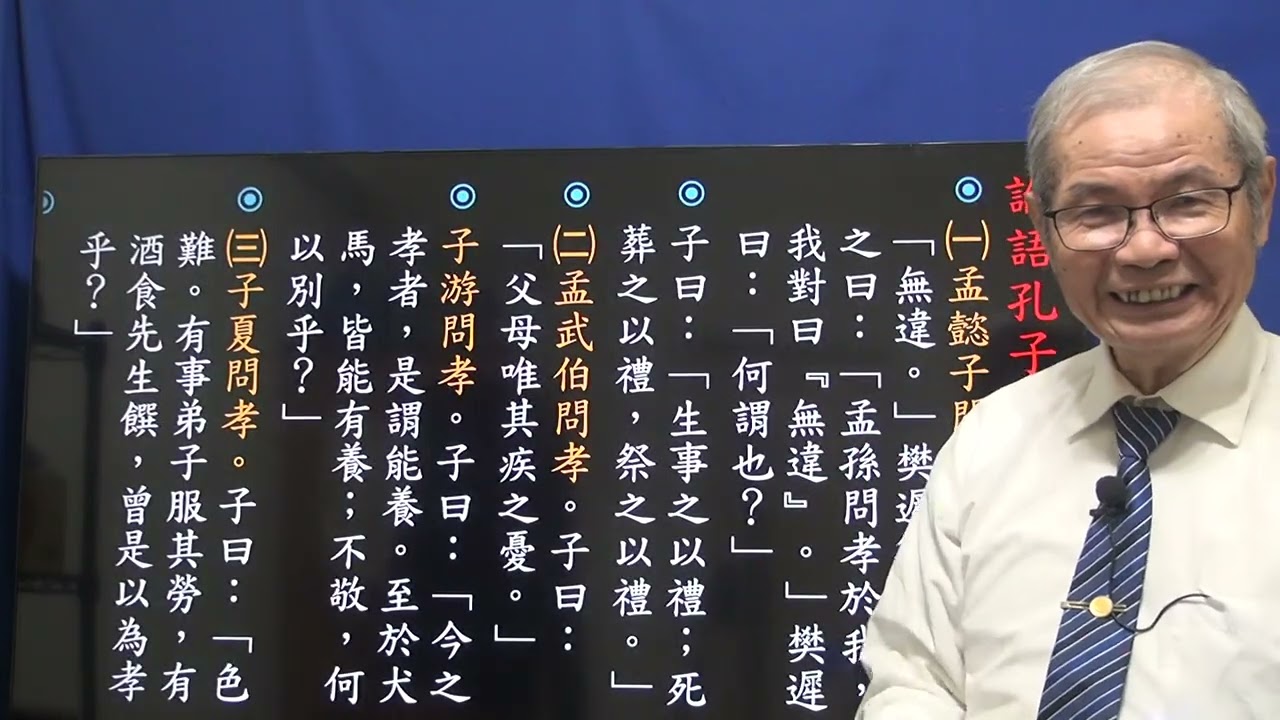 語孔子
㈠孟懿子
「無違。」樊遲
之曰：「孟孫問孝於我，
我對曰『無違』。」樊遲
曰：「何謂也？」
子曰：「生事之以禮；死
葬之以禮，祭之以禮。」
㈡孟武伯問孝。子曰：
「父母唯其疾之憂。」
子游問孝。子曰：「今之
孝者，是謂能養。至於犬
馬，皆能有養；不敬，何
以別乎？」
㈢子夏問孝。子曰：「色
難。有事弟子服其勞，有
酒食先生饌，曾是以為孝
乎？」